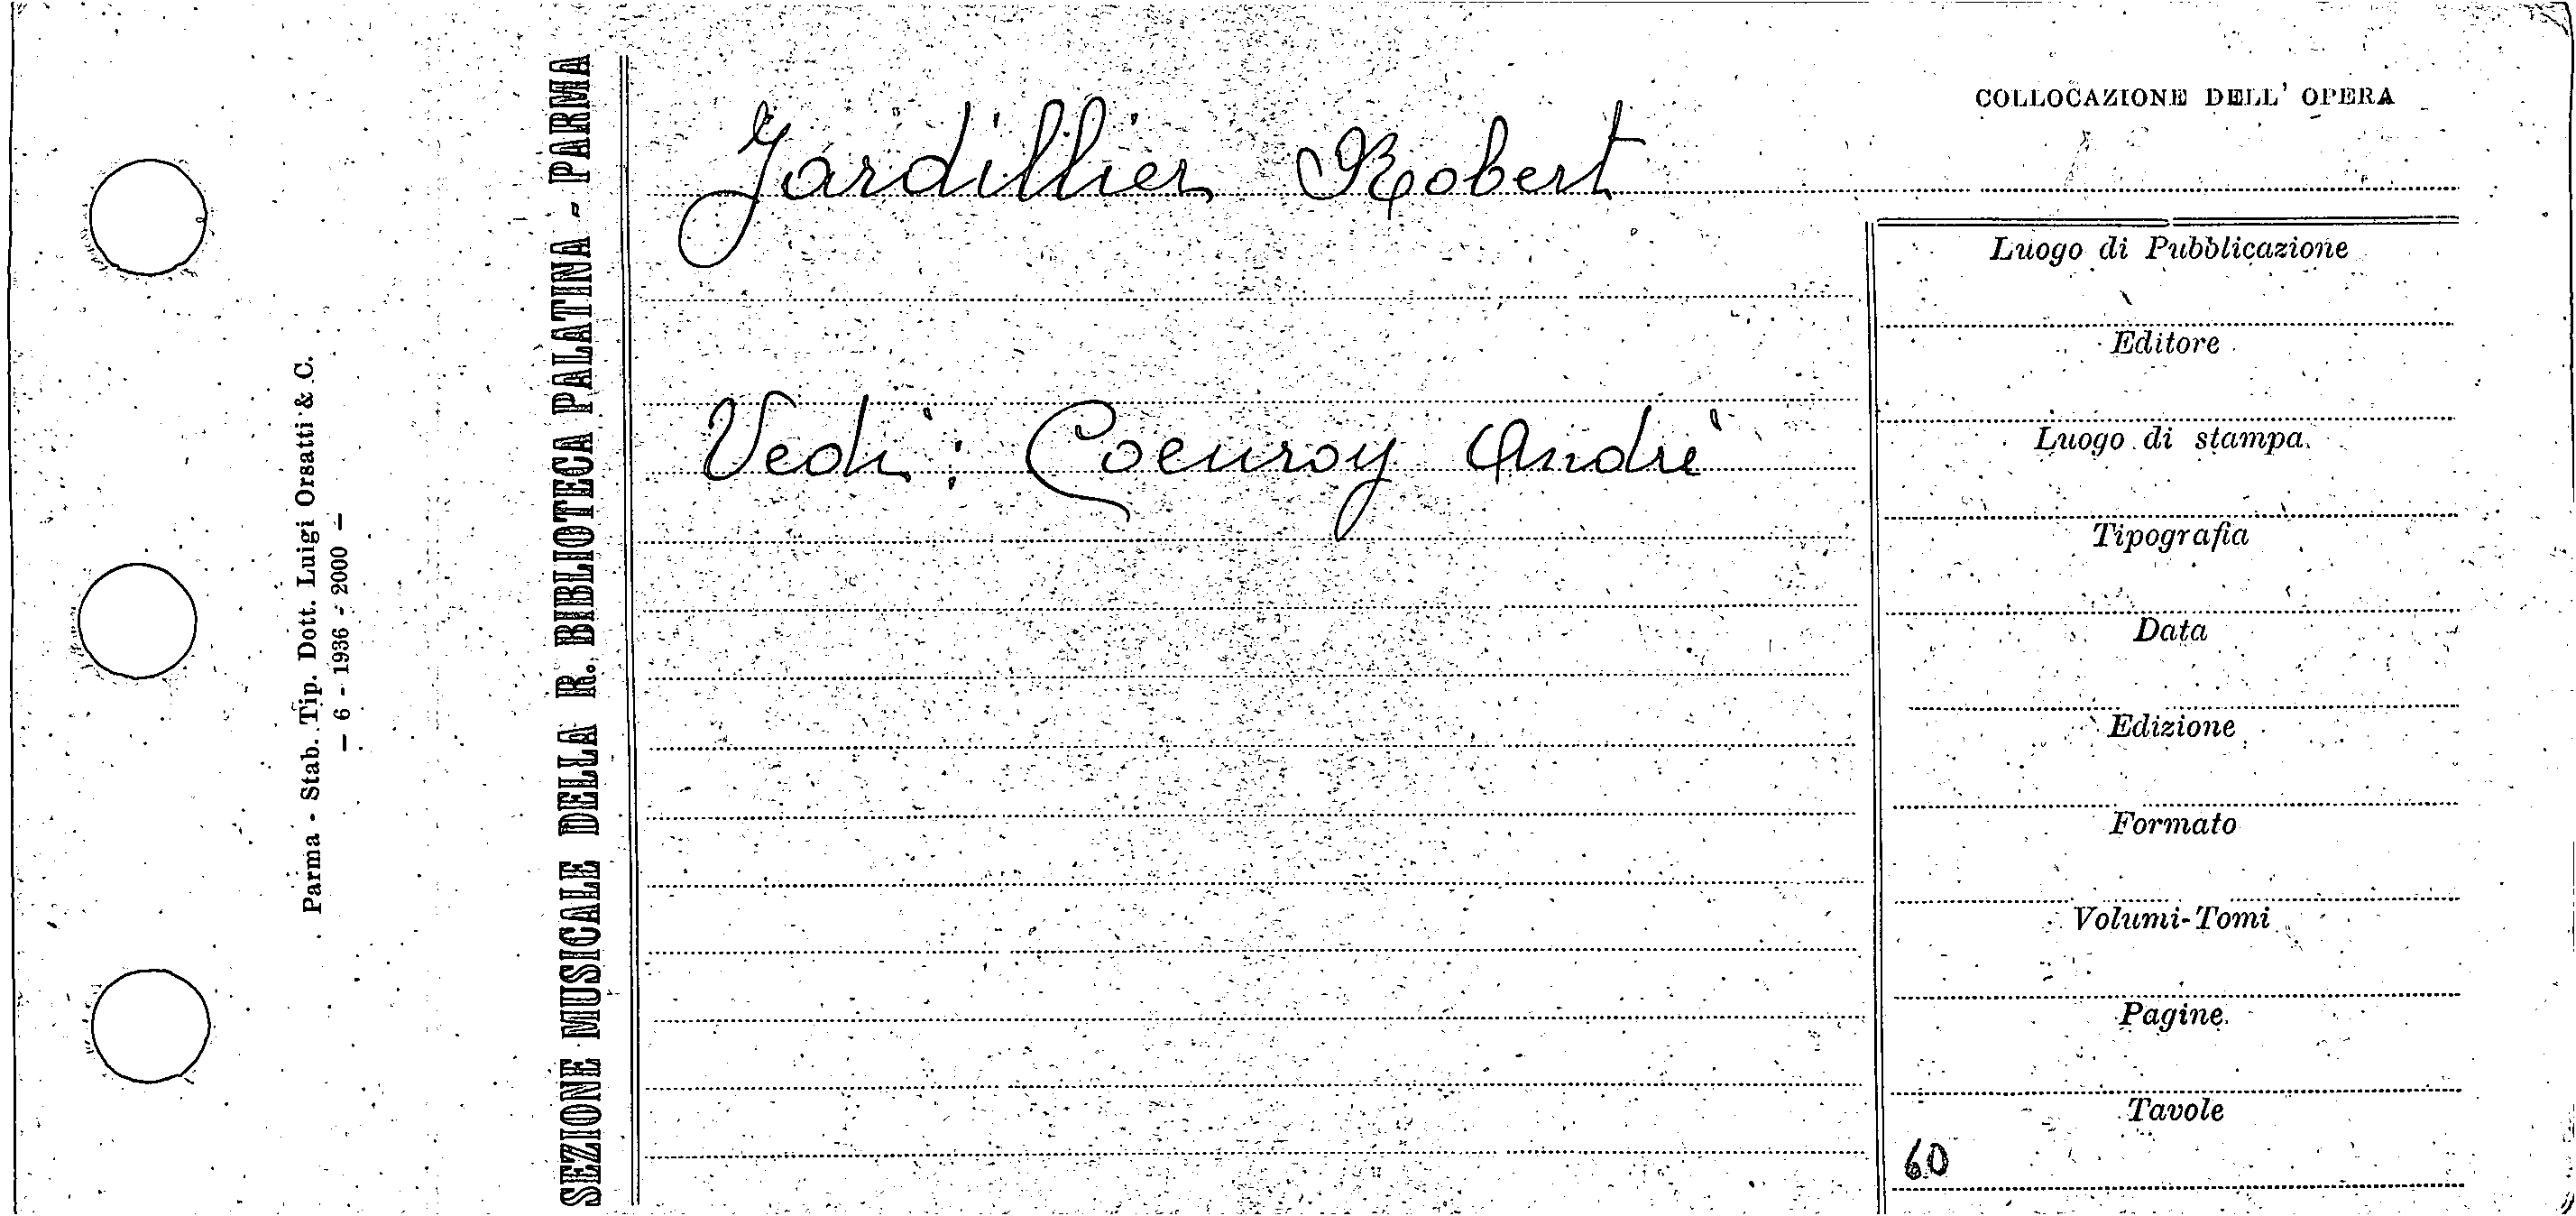 Parma - Stab. Tip. Dott. Luigi Orsatti & C.
— 6 - 1936 - 2000 —
SEZIONE MUSICALE DELLA R. BIBLIOTECA PALATINA - PARMA
Jardillier Robert
Vedi: Coeuroy André
COLLOCAZIONE DELL' OPERA
Luogo di Pubblicazione
Editore
Luogo di stampa
Tipografia
Data
Edizione
Formato
Volumi-Tomi
Pagine
Tavole
60